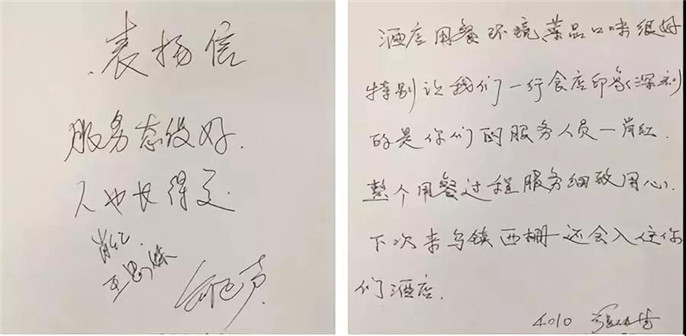 表扬信
服务态度好.
人也长得美.
肖红.
酒店用餐环境菜品口味很好
特别让我们一行食店印象深刻
的是你们的服务人员一肖红.
整个用餐过程服务细致用心.
下次来乌镇西栅还会入住你
们酒店.
4010